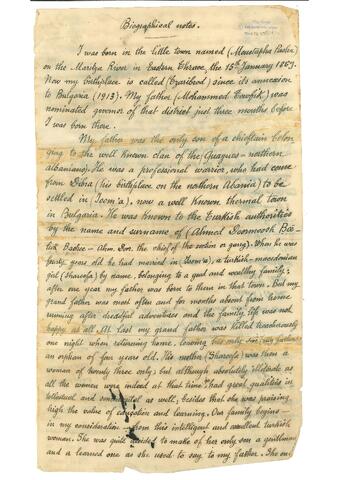 Biographical notes.
I was born in the little town named (Moustapha Pasha)
on the Maritza River in Eastern Thrace, the 15th January 1869.
Now my birthplace is called (Czaribrod) since its annexion
to Bulgaria (1913). My father (Mohammed Tewfik) was
nominated governor of that district just three months before
I was born there.
My father was the only son of a chieftain belon
ging to the well known clan of the (Guegues - northern
albanians). He was a professional warrior, who had come
from Dibra (his birthplace on the northern Albania) to be
settled in (Joom'a), now a well known thermal town
in Bulgaria. He was known to the Turkish authorities
by the name and surname of (Ahmed Doormoosh
. When he was
forty years old he had married in (Joom'a), a turkish-macedonian
girl (Shareefa) by name, belonging to a good and wealthy family;
after one year my father was born to them in that town. But my
grand father was most often and for months absent from home
running after dreadful adventures and the family life was not
happy at all. At last my grand father was killed treacherously
one night when returning home, leaving his only son (my father)
an orphan of four years old. His mother (Shareefa) was then a
woman of twenty three only; but although absolutely illiterate as
all the women were indeed at that time had great qualities in
tellectual and as well, besides that she was praising
high the value of education and learning. Our family begins
in my consideration from this intelligent and excellent turkish
woman. She was quite decided to make of her only son a gentleman
and a learned one as she used to say to my father. She